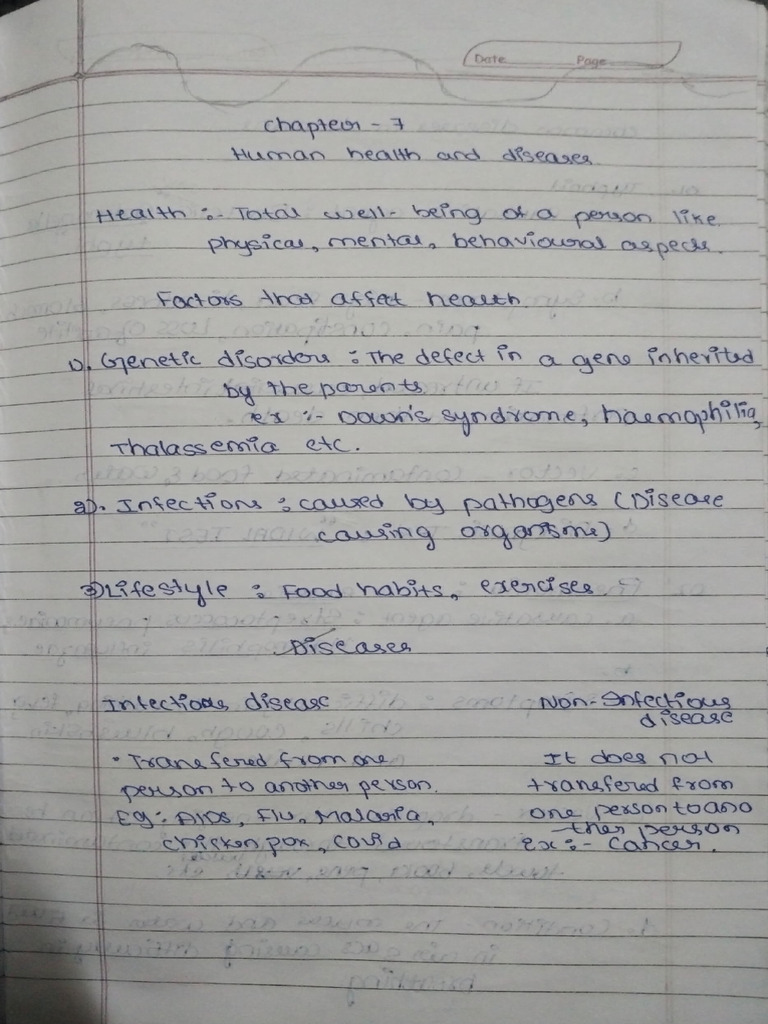 Date Page
Chapter - 7
Human health and diseases.
Health :- Total well-being of a person like
physical, mental, behavioural aspects.
Factors that affect health.
1). Genetic disorders : The defect in a gene inherited
by the parents
ex :- Down's syndrome, haemophilia,
Thalassemia etc.
2). Infections : caused by pathogens (Disease
causing organisms)
3) Lifestyle : Food habits, exercises
Diseases
Infectious disease Non-Infectious
disease
• Transfered from one It does not
person to another person. transfered from
Eg :- AIDS, Flu, Malaria, one person to ano
ther person
chicken pox, covid Ex :- Cancer.